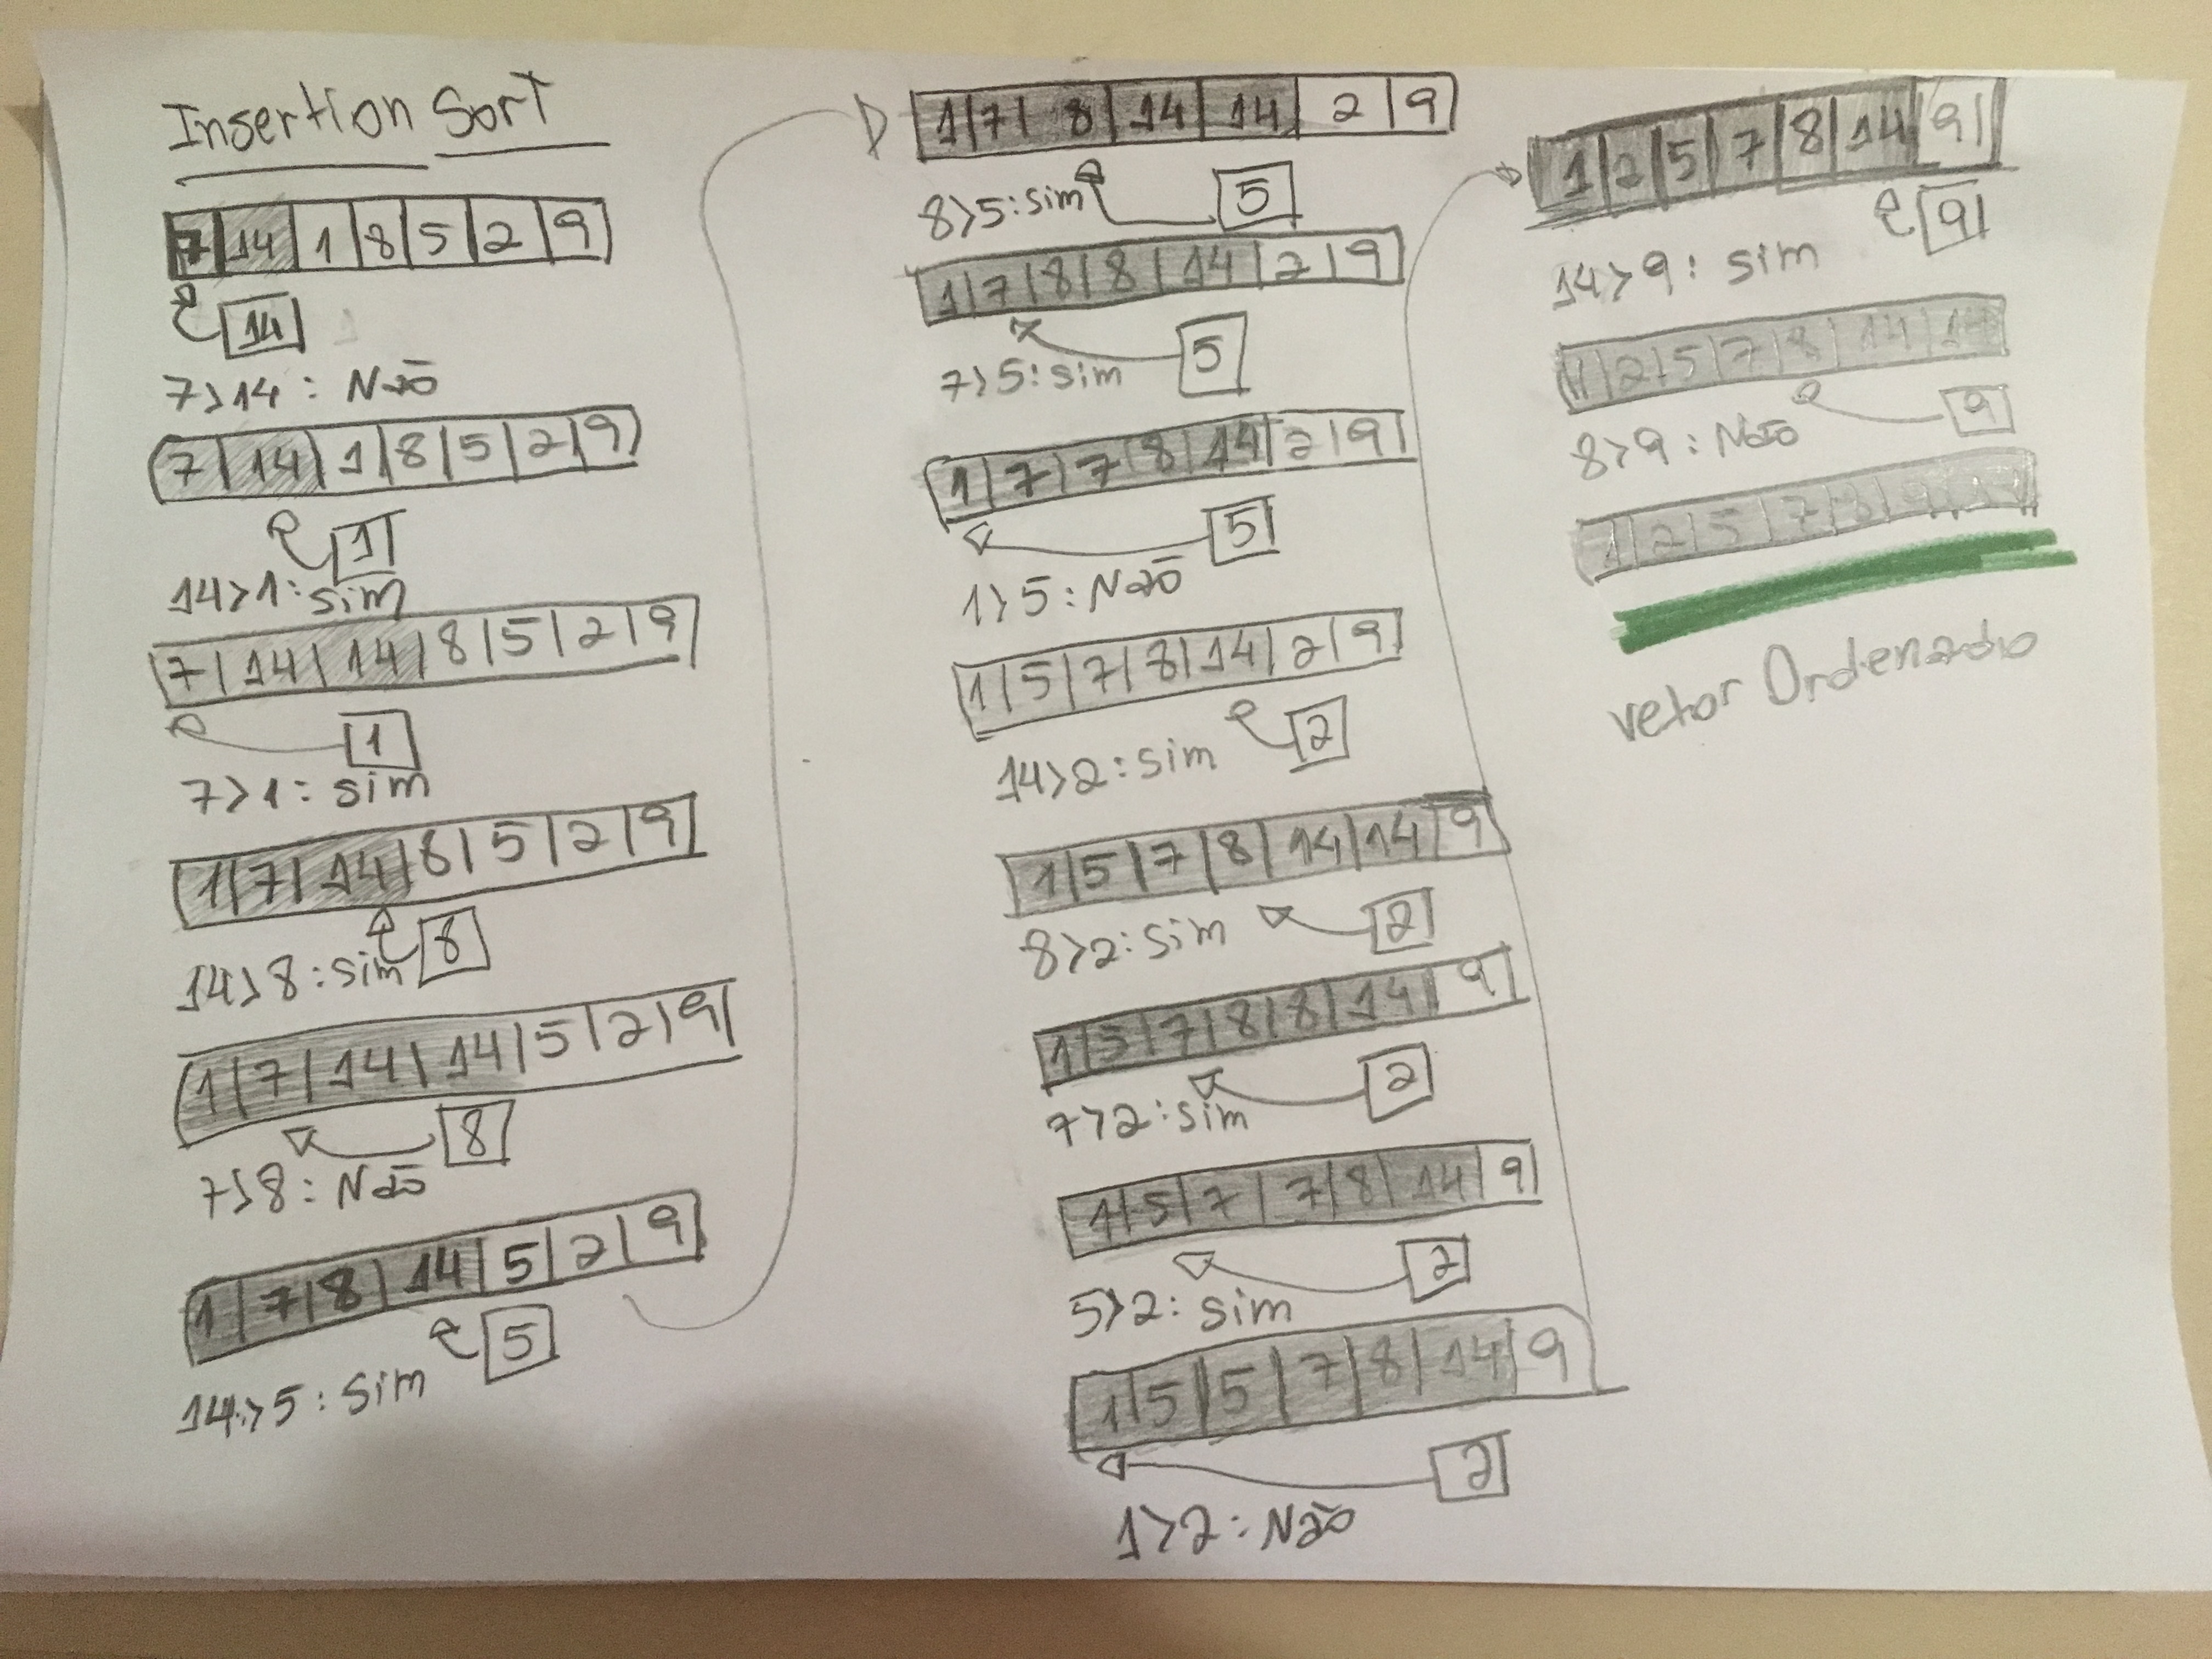 Insertion Sort
7 14 1 8 5 2 9
14
7>14: Não
7 14 1 8 5 2 9
1
14>1: Sim
7 14 14 8 5 2 9
1
7>1: Sim
1 7 14 8 5 2 9
8
14>8: Sim
1 7 14 14 5 2 9
8
7>8: Não
1 7 8 14 5 2 9
5
14>5: Sim
1 7 8 14 14 2 9
5
8>5: Sim
1 7 8 8 14 2 9
5
7>5: Sim
1 7 7 8 14 2 9
5
1>5: Não
1 5 7 8 14 2 9
2
14>2: Sim
1 5 7 8 14 14 9
2
8>2: Sim
1 5 7 8 8 14 9
2
7>2: Sim
1 5 7 7 8 14 9
2
5>2: Sim
1 5 5 7 8 14 9
2
1>2: Não
1 2 5 7 8 14 9
9
14>9: Sim
1 2 5 7 8 14 14
9
8>9: Não
1 2 5 7 8 9 14
Vetor Ordenado